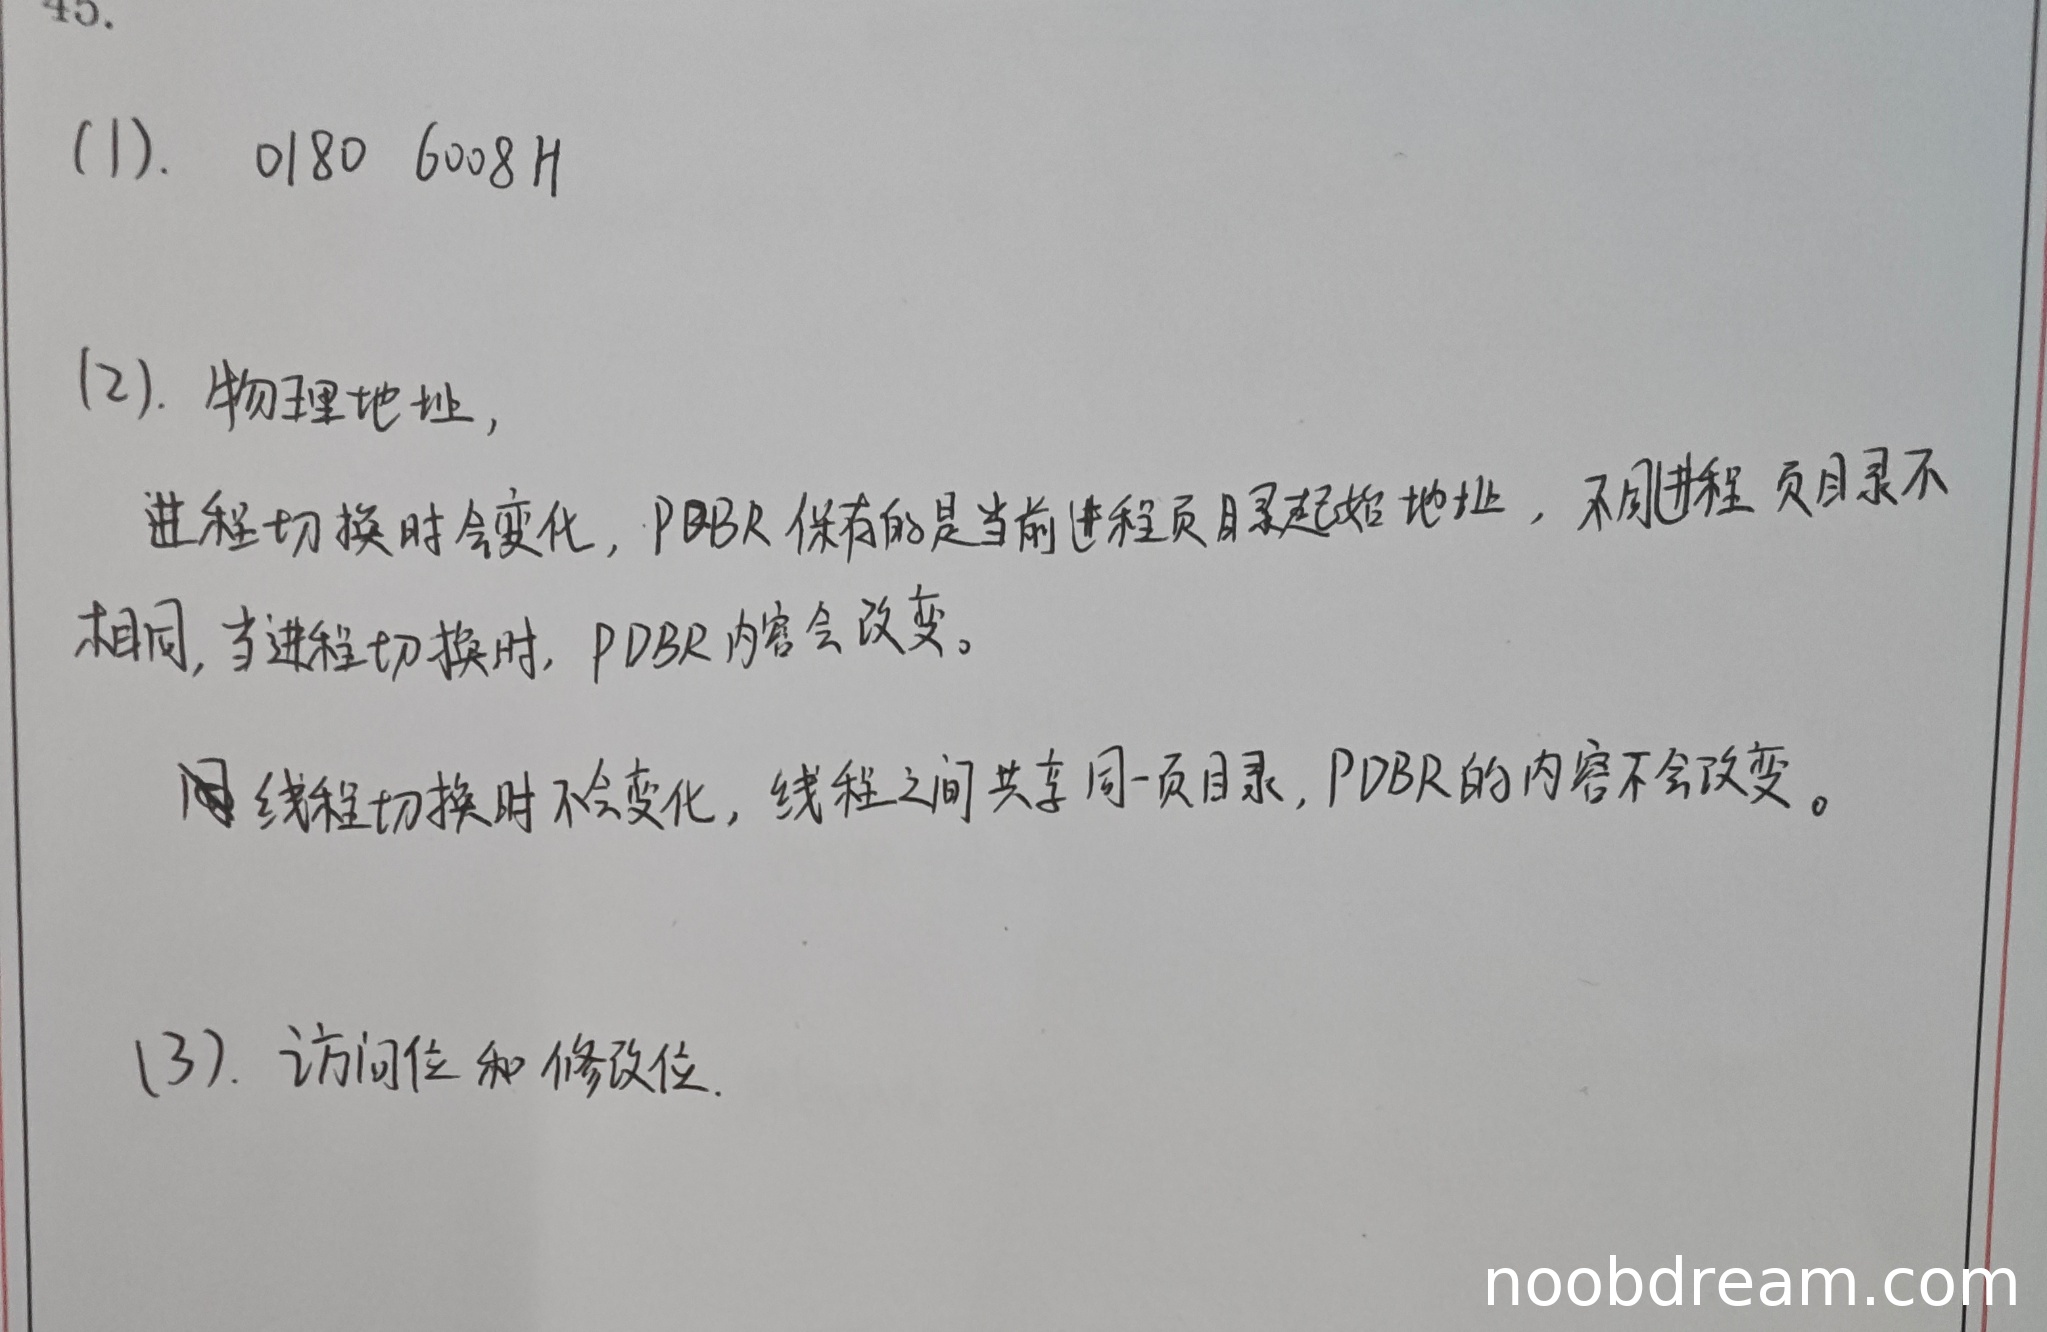 45.
(1). 0180 6008H
(2). 物理地址,
进程切换时会变化, PDBR保存的是当前进程页目录起始地址, 不同进程页目录不
相同, 当进程切换时, PDBR内容会改变。
线程切换时不会变化, 线程之间共享同一页目录, PDBR的内容不会改变。
(3). 访问位和修改位.
noobdream.com